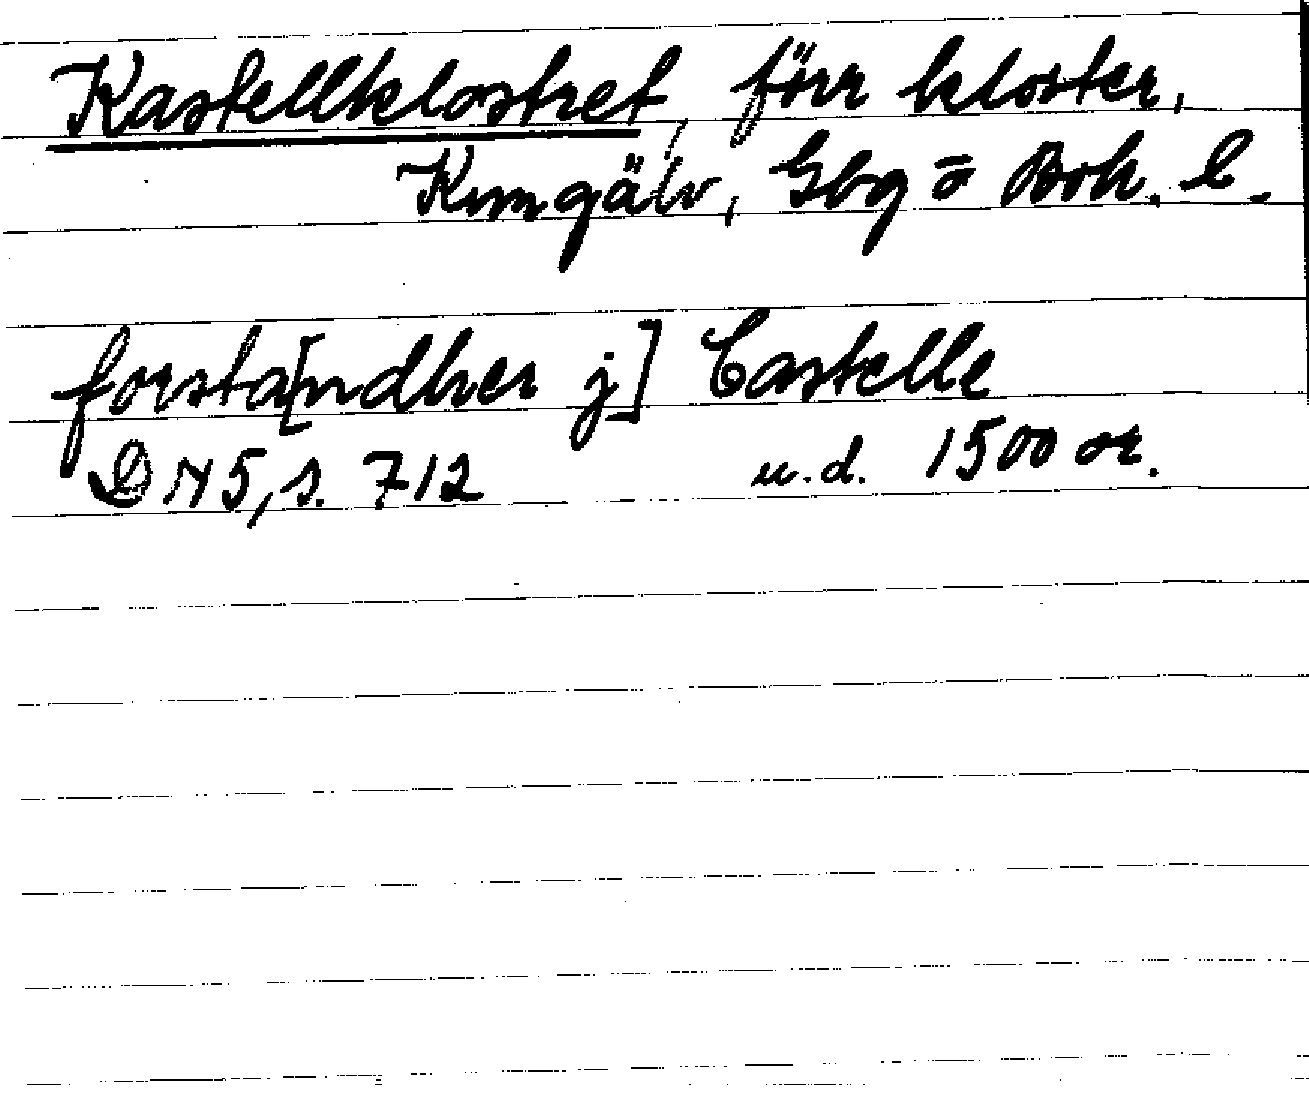 Kastellklostret, förr kloster,
Kungälv, Gbg o Boh. l.
forsta[ndher j] Castelle
DN 5, s. 712 u.d. 1500 or.